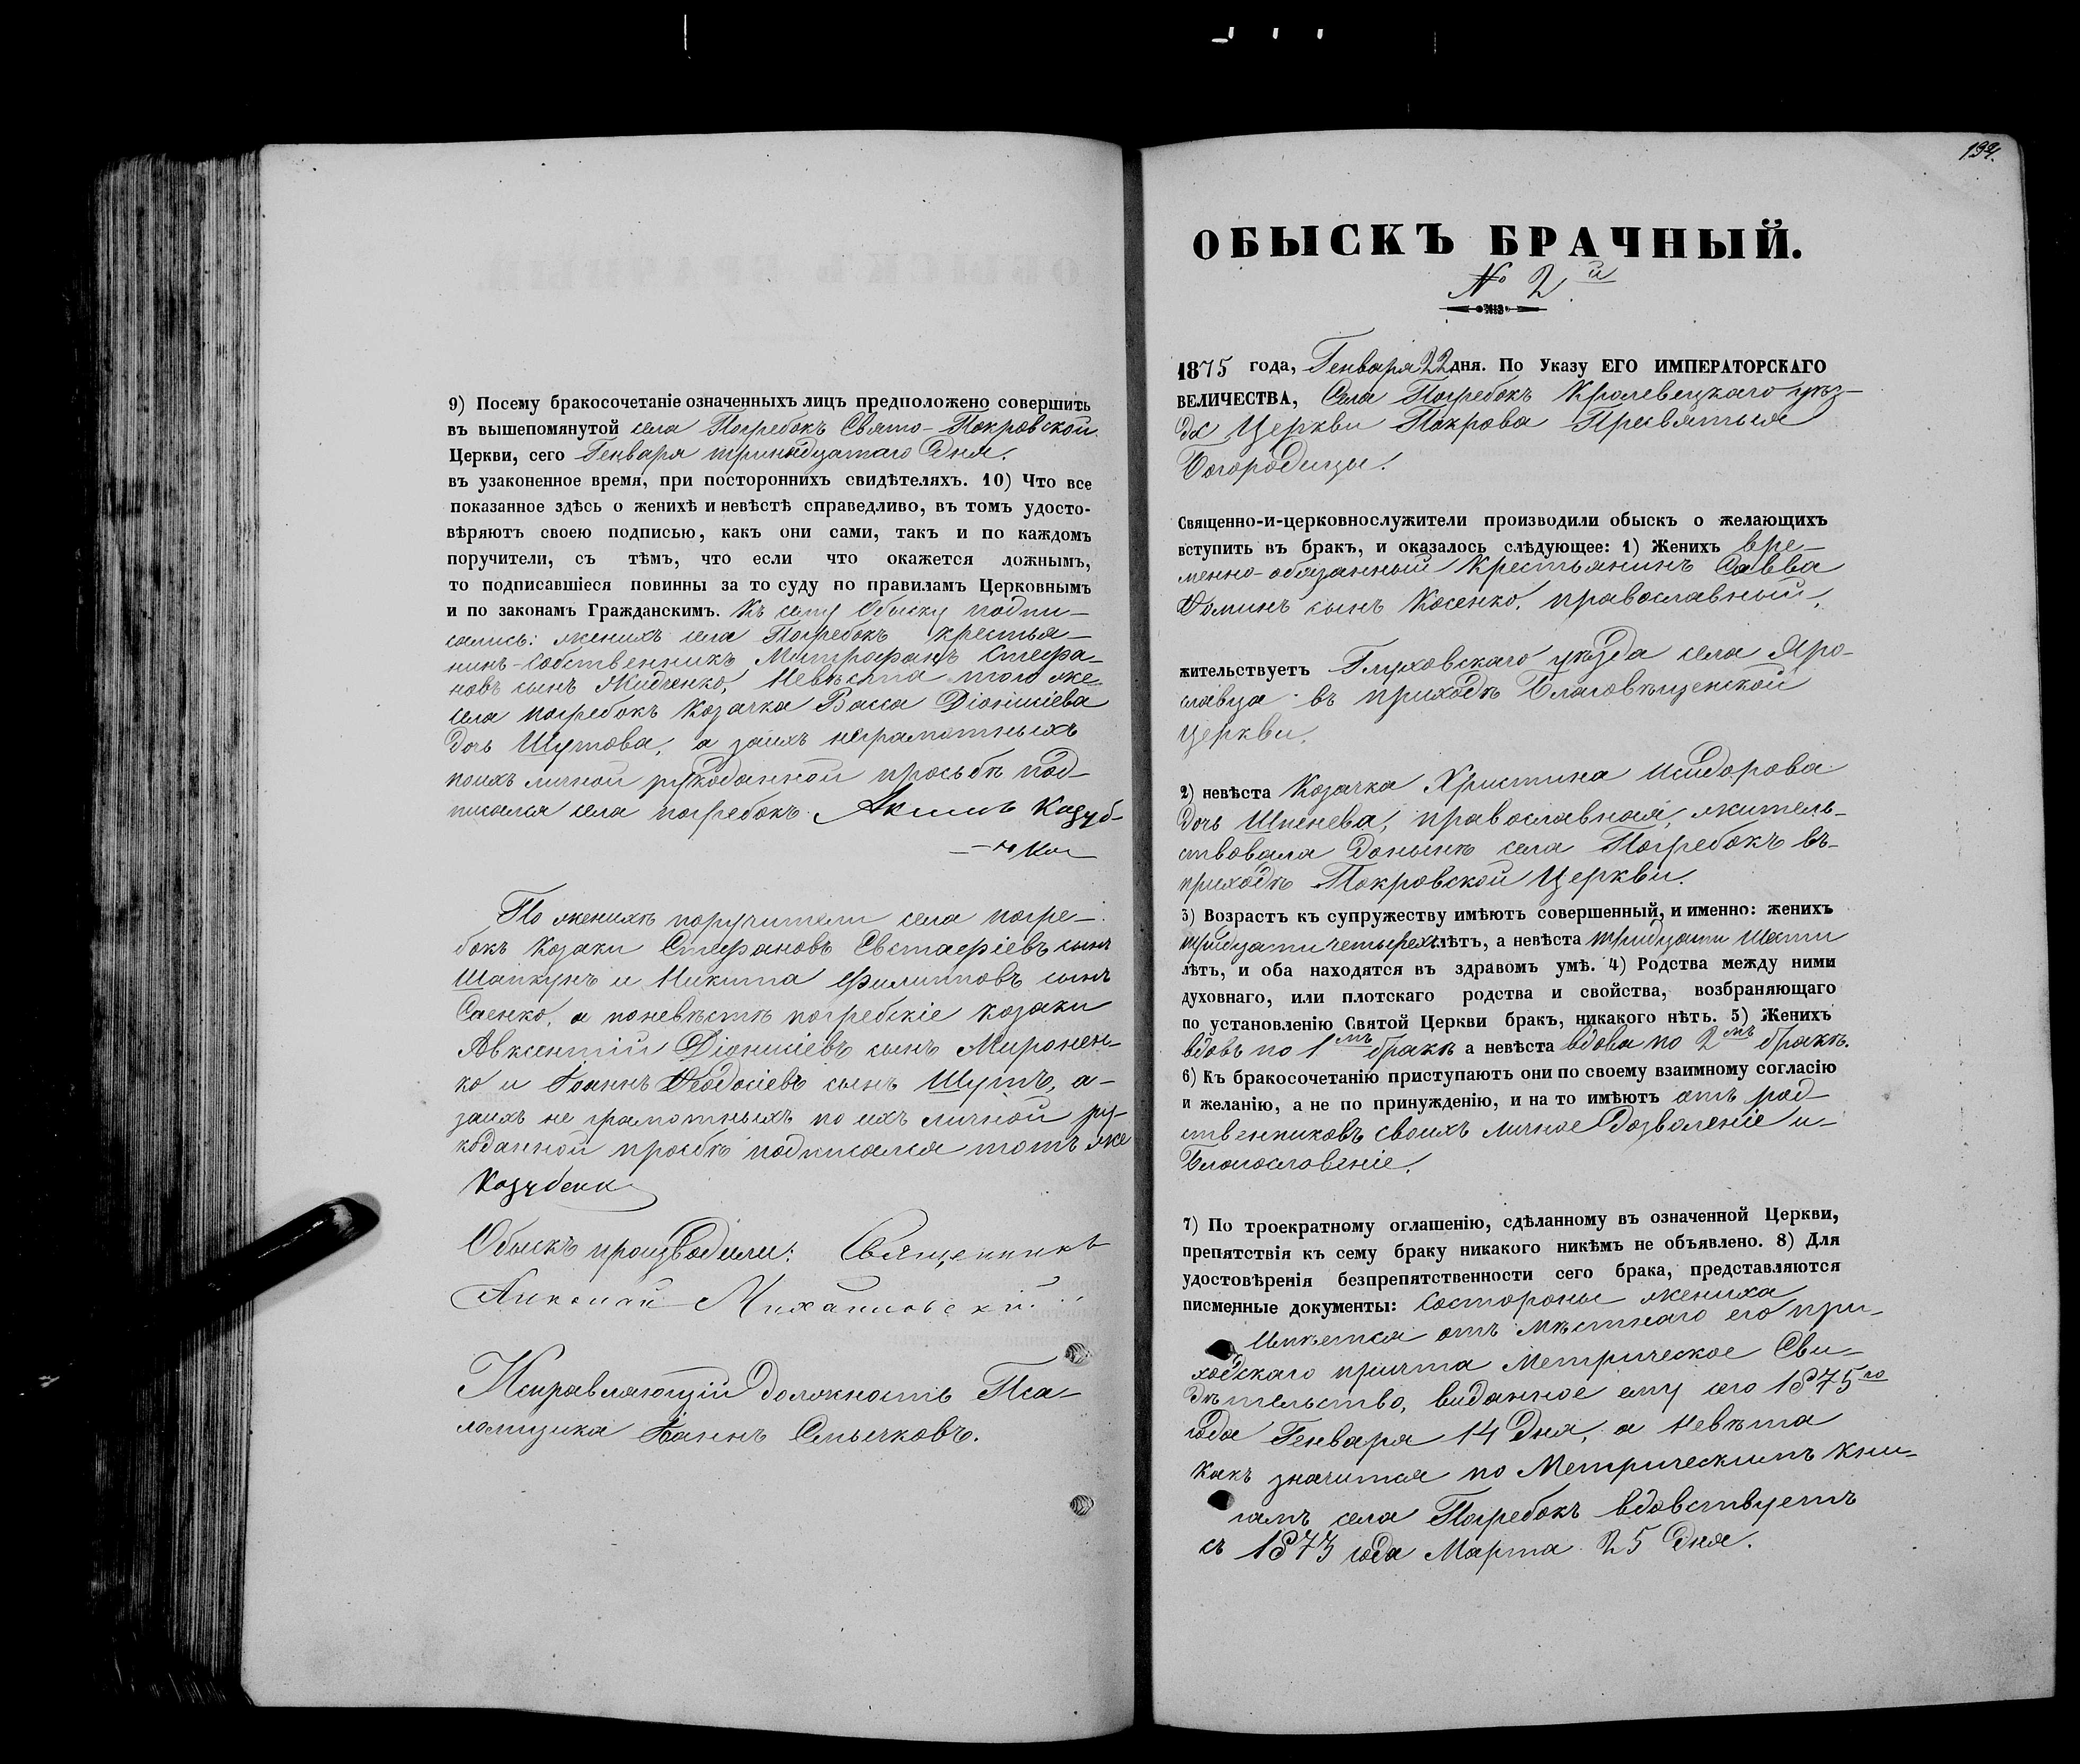 9) Посему бракосочетаніе означенныхъ лицъ предположено совершить
въ вышепомянутой села Погребокъ Свято-Покровской
Церкви, сего Генваря тринадцатаго Дня.
въ узаконенное время, при постороннихъ свидѣтеляхъ. 10) Что все
показанное здѣсь о женихѣ и невѣстѣ справедливо, въ томъ удосто-
вѣряютъ своею подписью, какъ они сами, такъ и по каждомъ
поручители, съ тѣмъ, что если что окажется ложнымъ,
то подписавшіеся повинны за то суду по правиламъ Церковнымъ
и по законамъ Гражданскимъ. Къ сему Обыску подпи-
сались: женихъ села Погребокъ крестья-
нинъ-собственникъ Митрофанъ Стефа-
новъ сынъ Жидченко, Невѣста того же
села погребокъ Козачка Васса Діонисіева
дочь Шутова, а заихъ неграмотныхъ
поихъ личной рукоданной просьбѣ под-
писался села погребокъ Акимъ Козуб-
По женихѣ поручители села погре-
бокъ Козаки Стефановъ Евстафіевъ сынъ
Шапкунъ и Никита Филиповъ сынъ
Саенко, а поневѣстѣ погребскіе козаки
Авксентій Діонисіевъ сынъ Миронен-
ко и Іоаннъ Феодосіевъ сынъ Шутъ, а-
заихъ не грамотныхъ по ихъ личной ру-
коданной прозбѣ подписался тотъ же
Козубенк
Обыскъ производили: Священникъ
Николай Михайловскій
Исправляющій должность Пса-
ломщика Іоаннъ Смычковъ.
134.
ОБЫСКЪ БРАЧНЫЙ.
№ 2й
1875 года, Генваря 22 дня. По Указу ЕГО ИМПЕРАТОРСКАГО
ВЕЛИЧЕСТВА, Села Погребокъ Кролевецкаго уѣз-
да Церкви Покрова Пресвятыя
Богородицы.
Священно-и-церковнослужители производили обыскъ о желающихъ
вступить въ бракъ, и оказалось слѣдующее: 1) Женихъ вре-
менно-обязанный Крестьянинъ Савва
Фоминъ сынъ Косенко, православный,
жительствуетъ Глуховскаго уѣзда села Яро-
славца въ приходѣ Благовѣщенской
Церкви.
2) невѣста Козачка Христина Исидорова
дочь Шпенева, православная, житель-
ствовала донынѣ села Погребокъ въ-
приходѣ Покровской Церкви.
3) Возрастъ къ супружеству имѣютъ совершенный, и именно: женихъ
тридцати четырехъ лѣтъ, а невѣста тридцати шати
лѣтъ, и оба находятся въ здравомъ умѣ. 4) Родства между ними
духовнаго, или плотскаго родства и свойства, возбраняющаго
по установленію Святой Церкви бракъ, никакого нѣтъ. 5) Женихъ
вдовъ по 1мъ бракѣ а невѣста вдова по 2мъ бракѣ.
6) Къ бракосочетанію приступаютъ они по своему взаимному согласію
и желанію, а не по принужденію, и на то имѣютъ отъ род-
ственниковъ своихъ личное Дозволеніе и-
Благословеніе.
7) По троекратному оглашенію, сдѣланному въ означенной Церкви,
препятствія къ сему браку никакого никѣмъ не объявлено. 8) Для
удостовѣренія безпрепятственности сего брака, представляются
писменные документы: состороны жениха
имѣется отъ мѣстнаго его при-
ходскаго причта Метрическое Сви-
дѣтельство, виданное ему сего 1875го
года Генваря 14 Дня, а Невѣста
Какъ значится по Метрическимъ Кни-
гамъ села Погребокъ вдовствуетъ
съ 1873 года Марта 25 Дня.